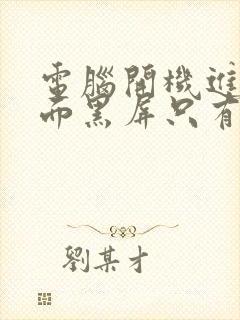 電腦開機進
而黑屏只有
劉某才